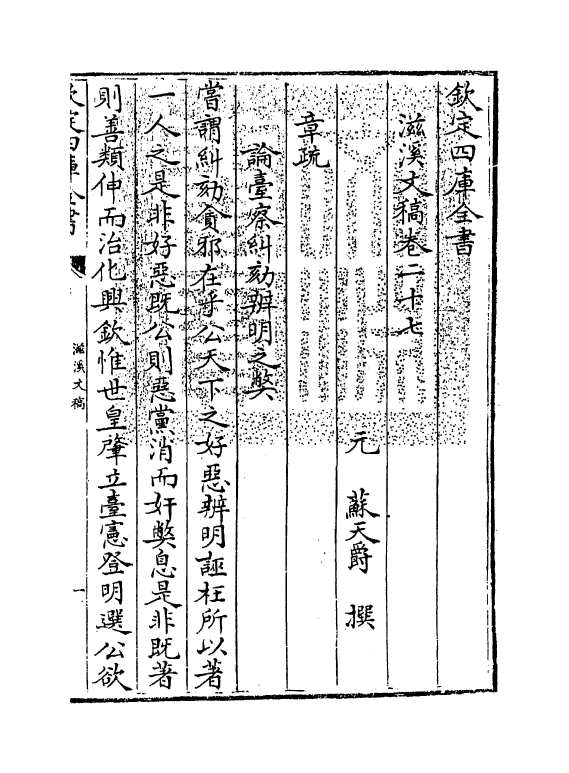 欽定四庫全書
滋溪文稿卷二十七
元 蘇天爵 撰
章疏
論臺察糾劾辨明之弊
嘗謂糾劾貪邪在乎公天下之好惡辨明誣枉所以著
一人之是非好惡既公則惡黨消而奸弊息是非既著
則善類伸而治化興欽惟世皇肇立臺憲登明選公欲
欽定四庫全書
滋溪文稿
一